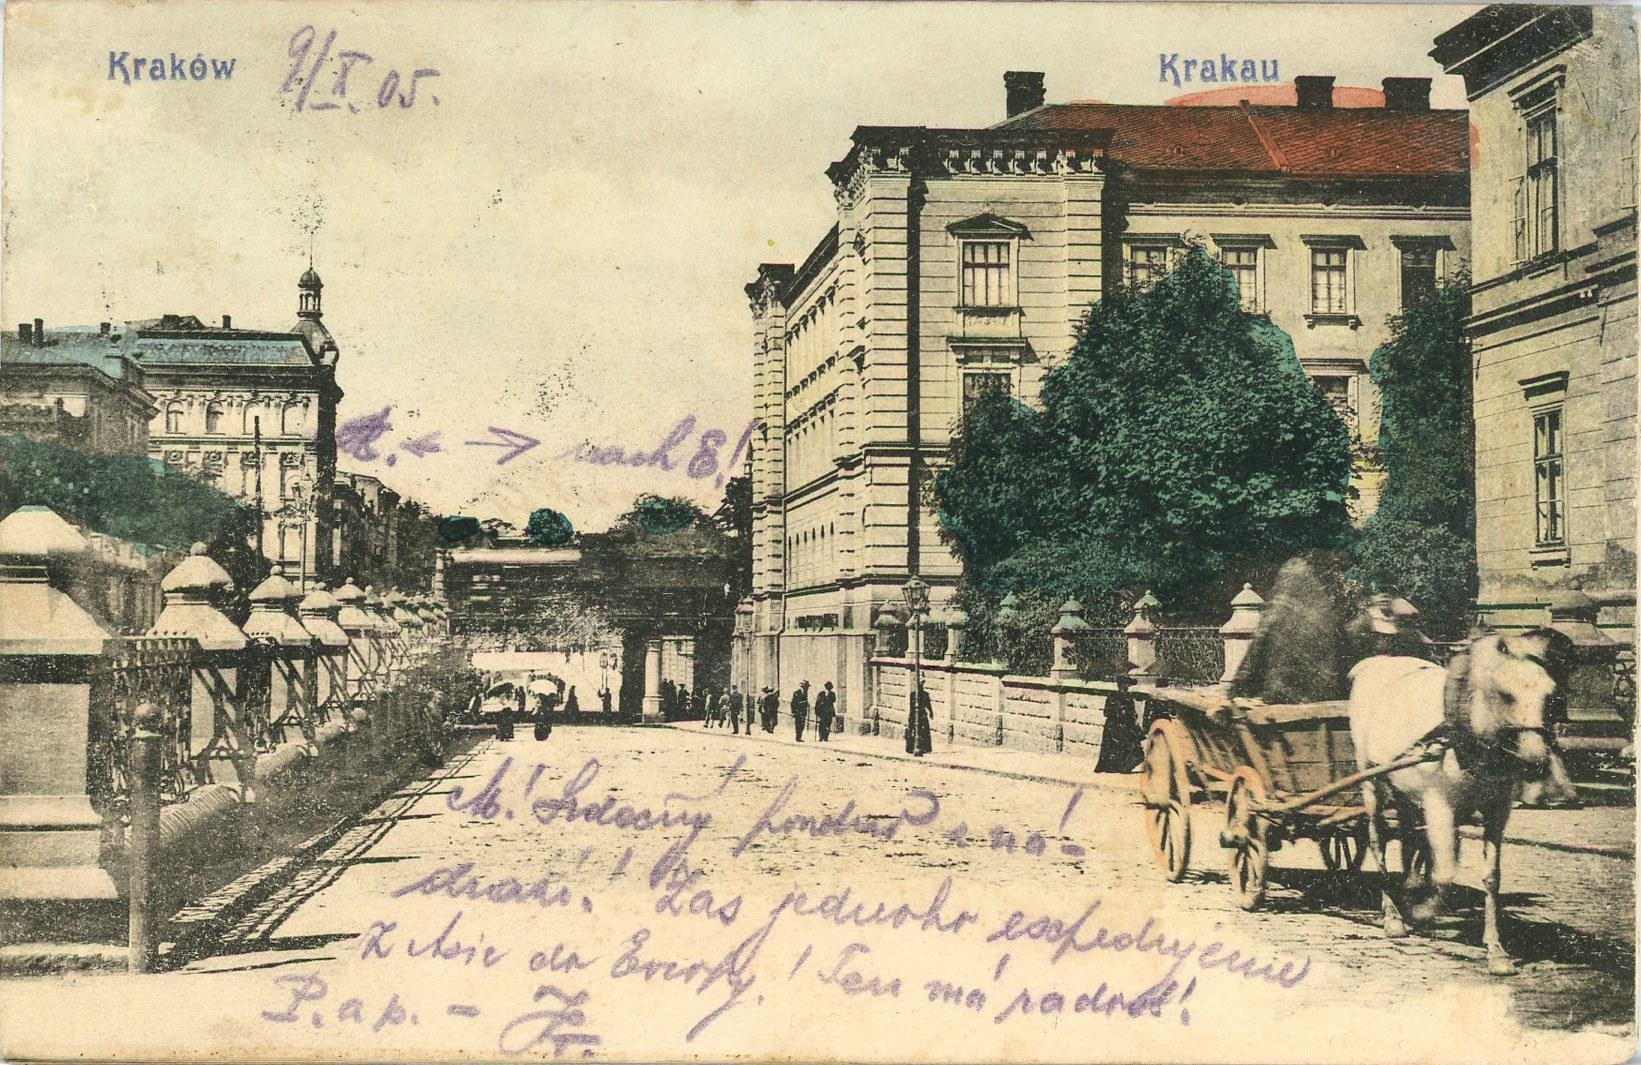 Kraków
9/X. 05.
Krakau
A. ← → nach E!
M! Srdečný pondrav s ná-
draží! Zas jednoho expedujeme
z Asie do Evropy! Ten má radost!
P. a p. - Fr.